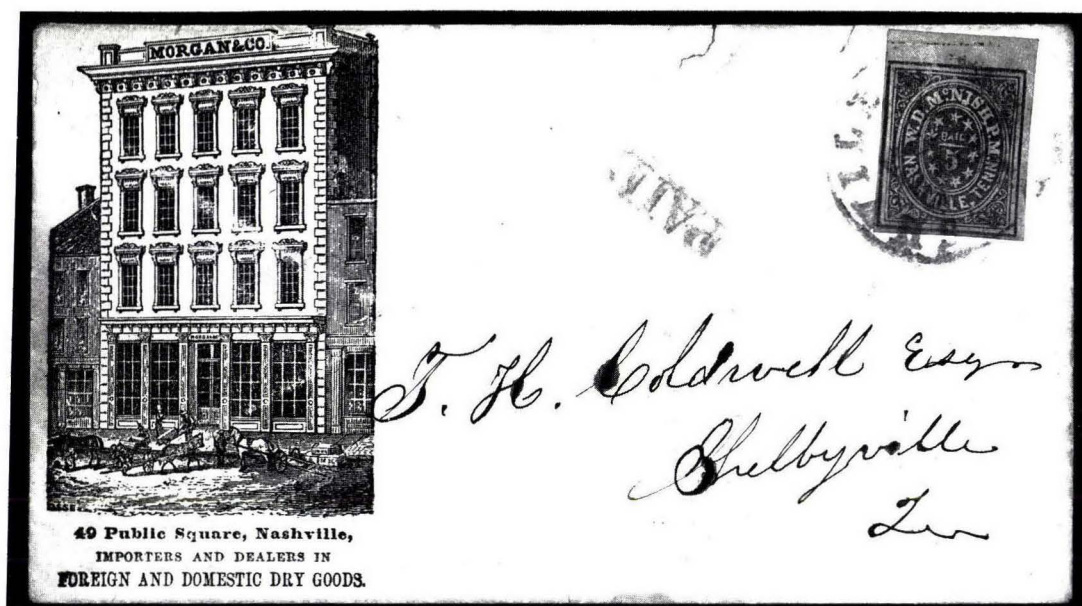 MORGAN & CO.
49 Public Square, Nashville,
IMPORTERS AND DEALERS IN
FOREIGN AND DOMESTIC DRY GOODS.
PAID
W.D. McNISH. P.M.
PAID
5
NASHVILLE, TENN.
T. H. Coldwell Esqr
Shelbyville
Ten